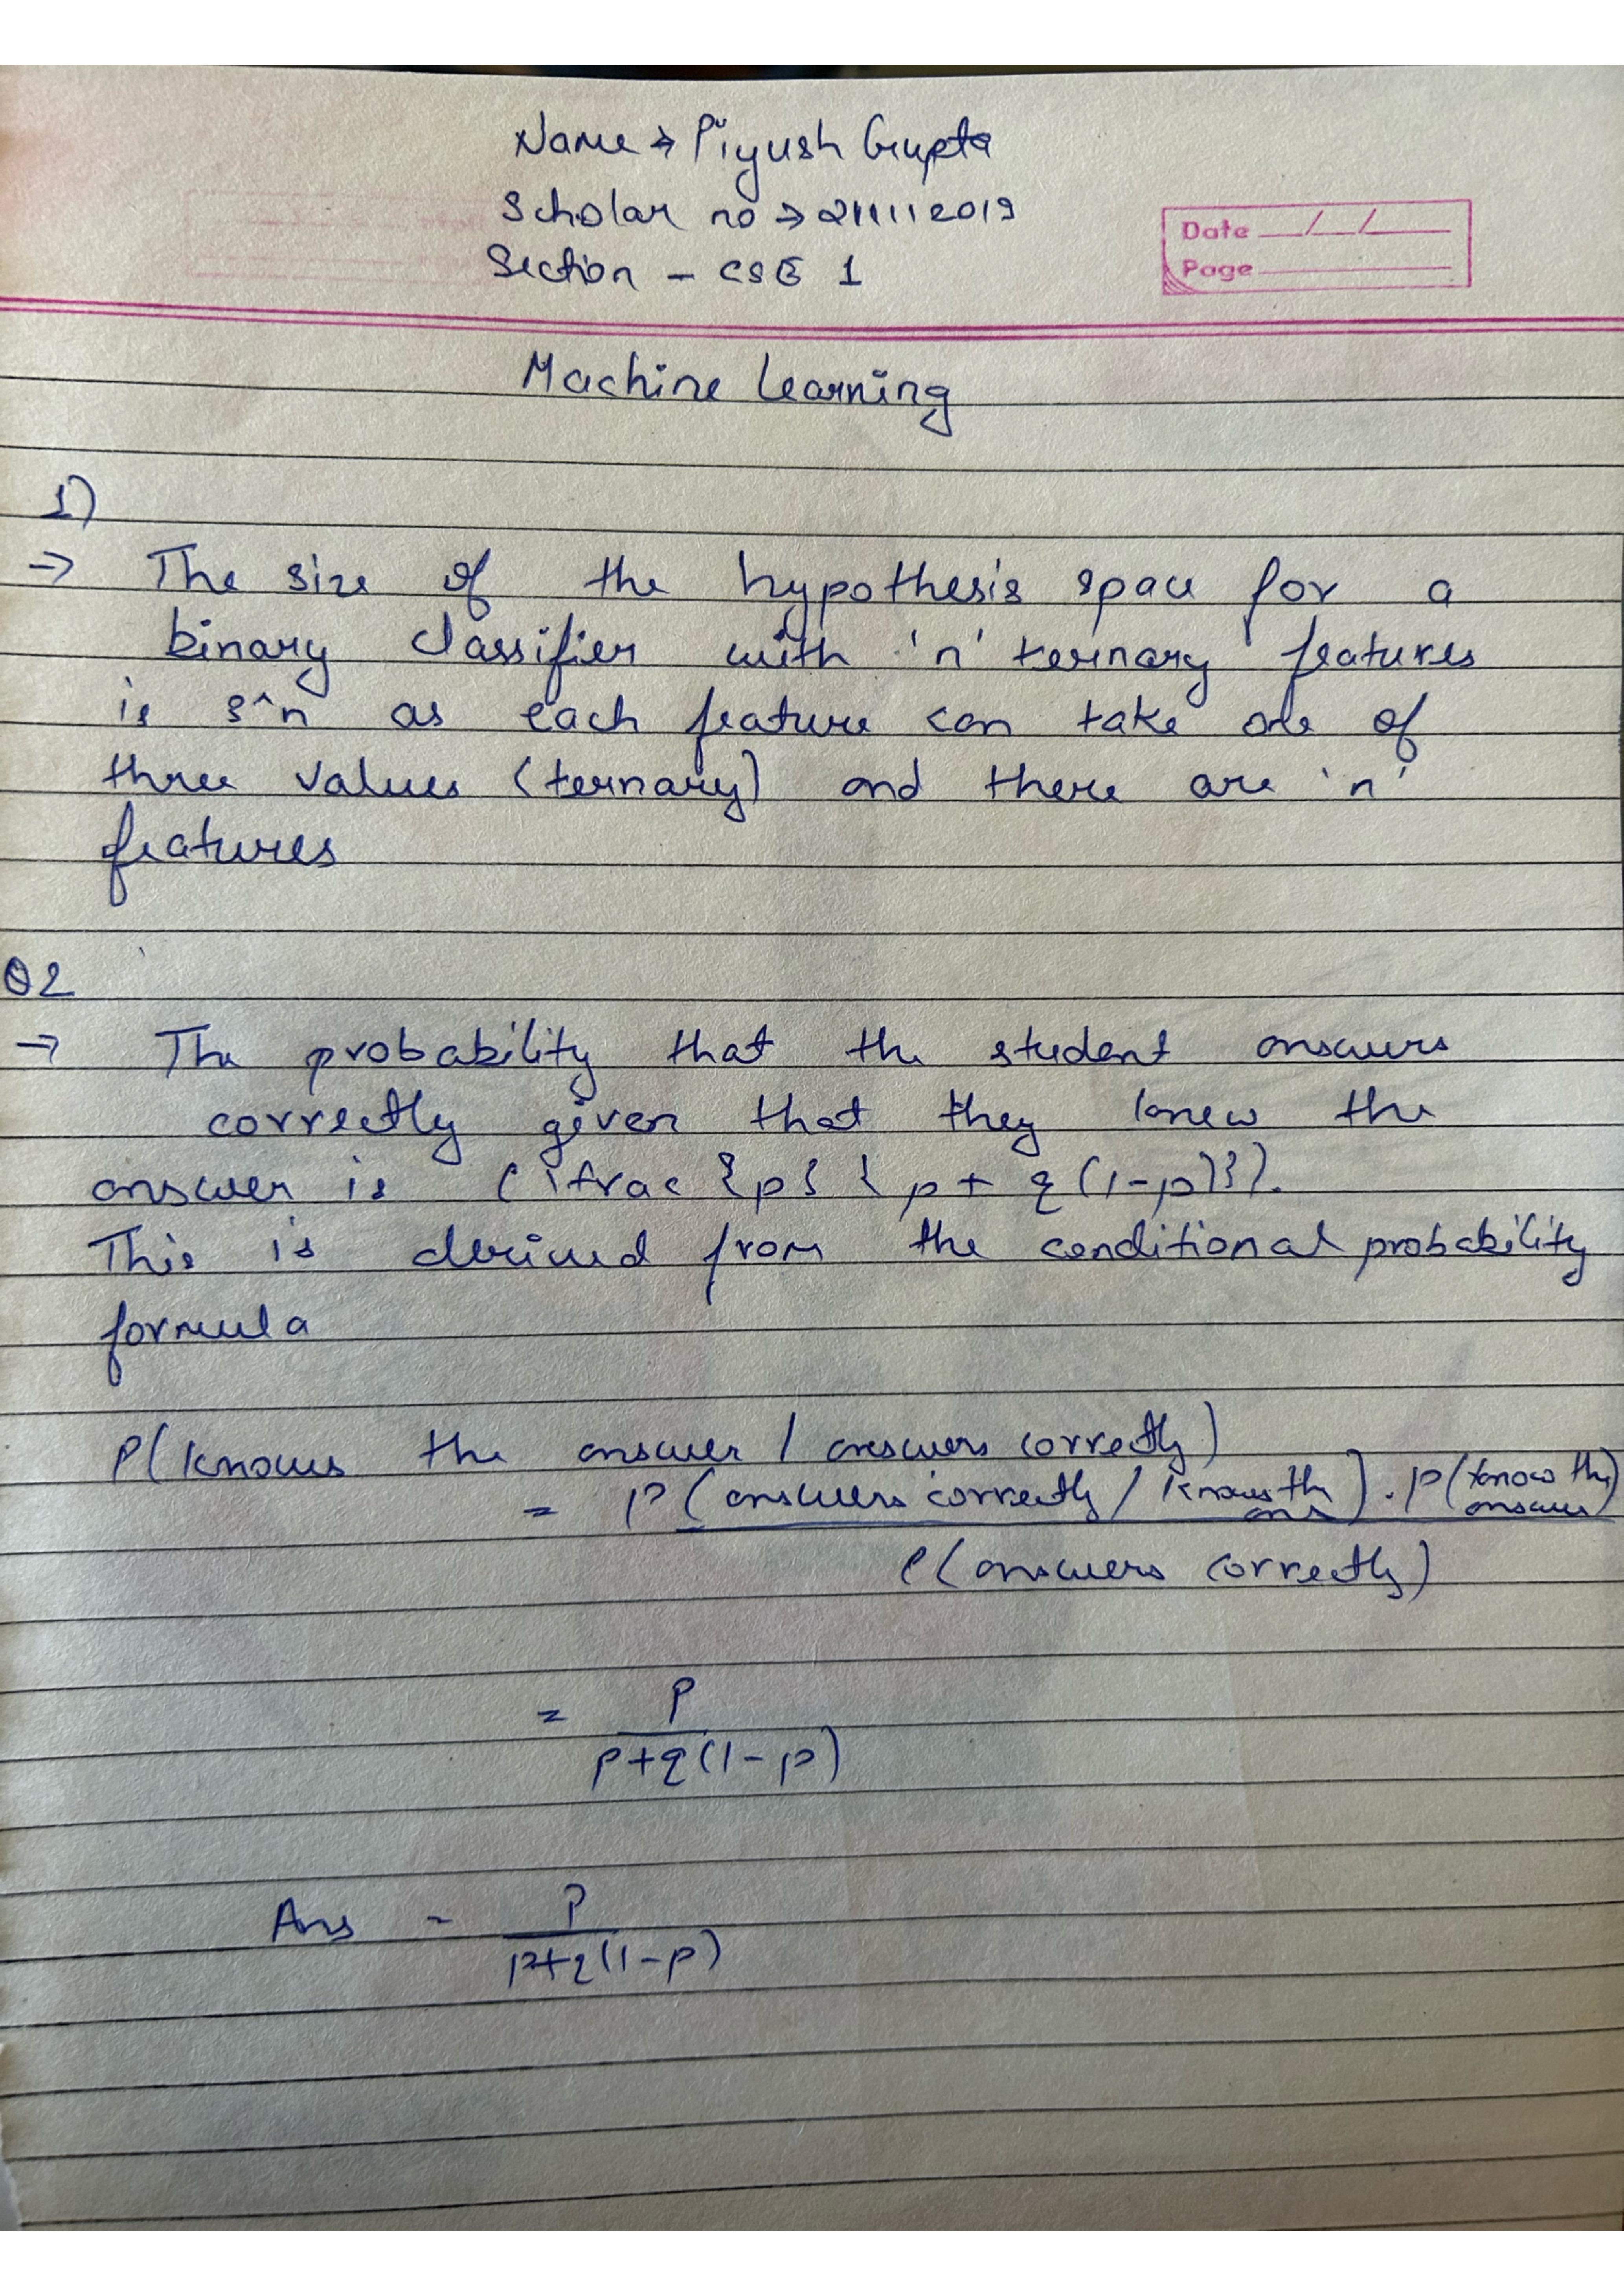 Name → Piyush Gupta
Scholar no → 211112019
Section - CSE 1
Date __/__/__
Page
Machine Learning
1)
→ The size of the hypothesis space for a
binary classifier with 'n' ternary features
is 3^n as each feature can take one of
three values (ternary) and there are 'n'
features
Q2
→ The probability that the student answers
correctly given that they knew the
answer is (\frac {p} {p + q(1-p)}).
This is derived from the conditional probability
formula
P(knows the answer / answers correctly)
= P(answers correctly / knows the ans) . P(know the answer)
P(answers correctly)
= p
p+q(1-p)
Ans - p
p+q(1-p)